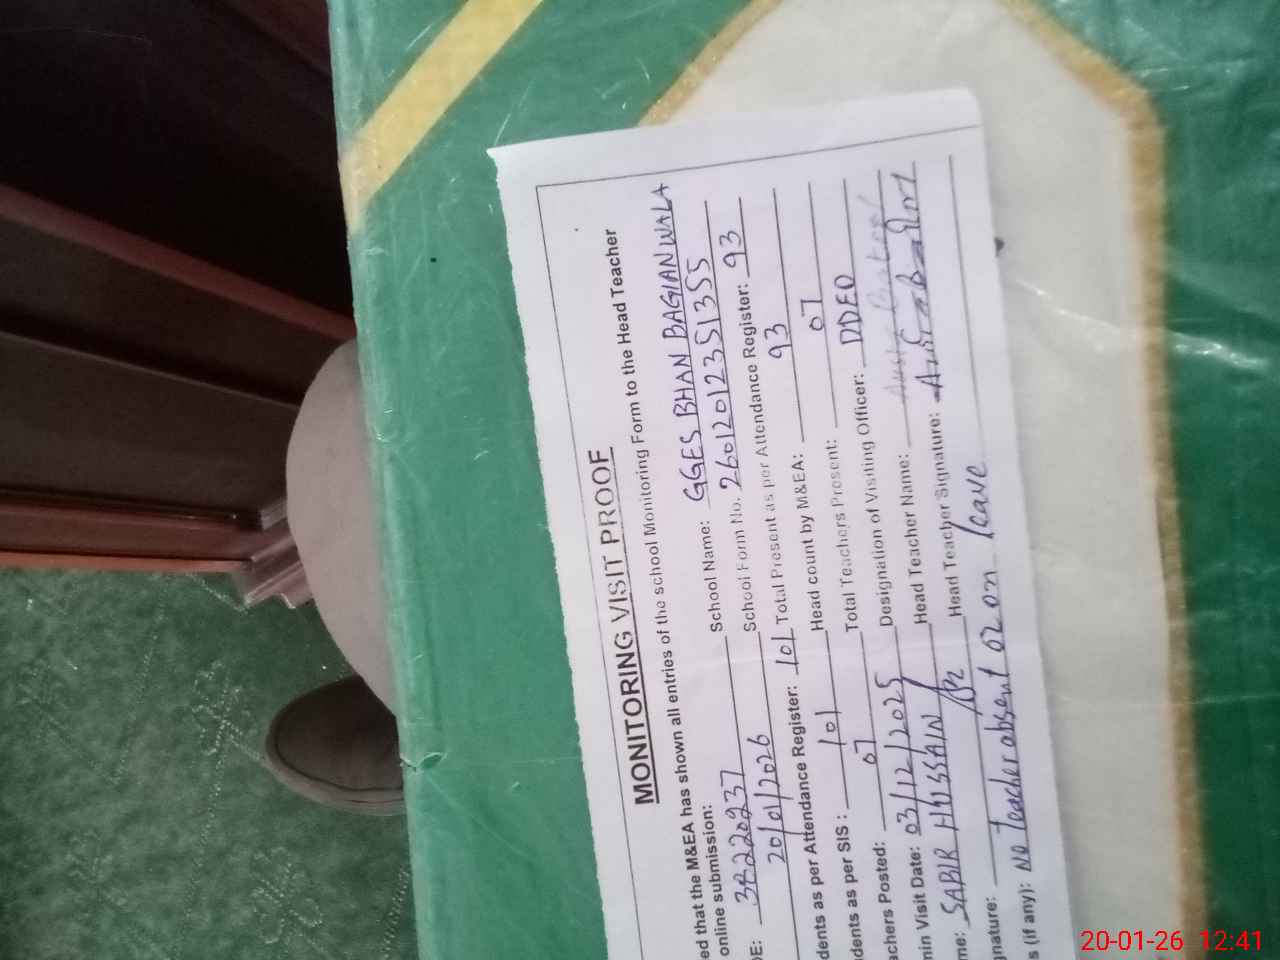 MONITORING VISIT PROOF
ed that the M&EA has shown all entries of the school Monitoring Form to the Head Teacher
online submission:
DE: 38220237 School Name: GGES BHAN BAGIANWALA
20/01/2026 School Form No. 26012012351355
dents as per Attendance Register: 101 Total Present as per Attendance Register: 93
dents as per SIS: 101 Head count by M&EA: 93
achers Posted: 07 Total Teachers Present: 07
min Visit Date: 03/12/2025 Designation of Visiting Officer: DDEO
me: SABIR HUSSAIN Head Teacher Name:
gnature: Head Teacher Signature:
s (if any): No Teacher absent 02 on leave
20-01-26 12:41